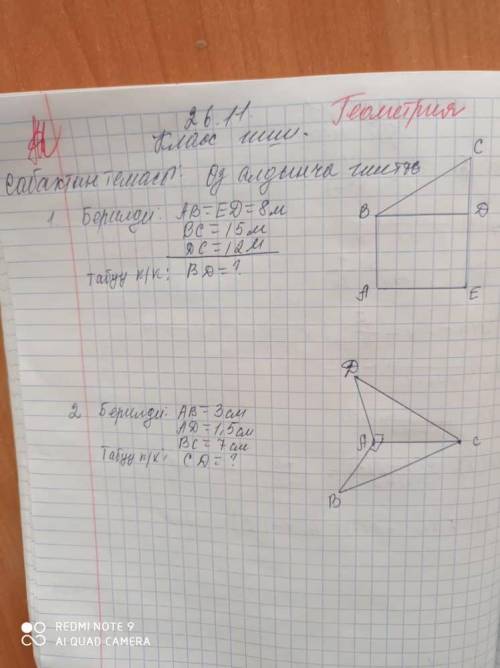 26.11.
Геометрия
Класс иши.
Сабактин темасы: Өз алдынча иштөө
1 Берилди: AB = ED = 8м
BC = 15м
DC = 12м
Табуу к/к: BD = ?
C
B
D
A
E
2 Берилди: AB = 3см
AD = 1,5см
BC = 7см
Табуу к/к: CD = ?
D
A
C
B
REDMI NOTE 9
AI QUAD CAMERA